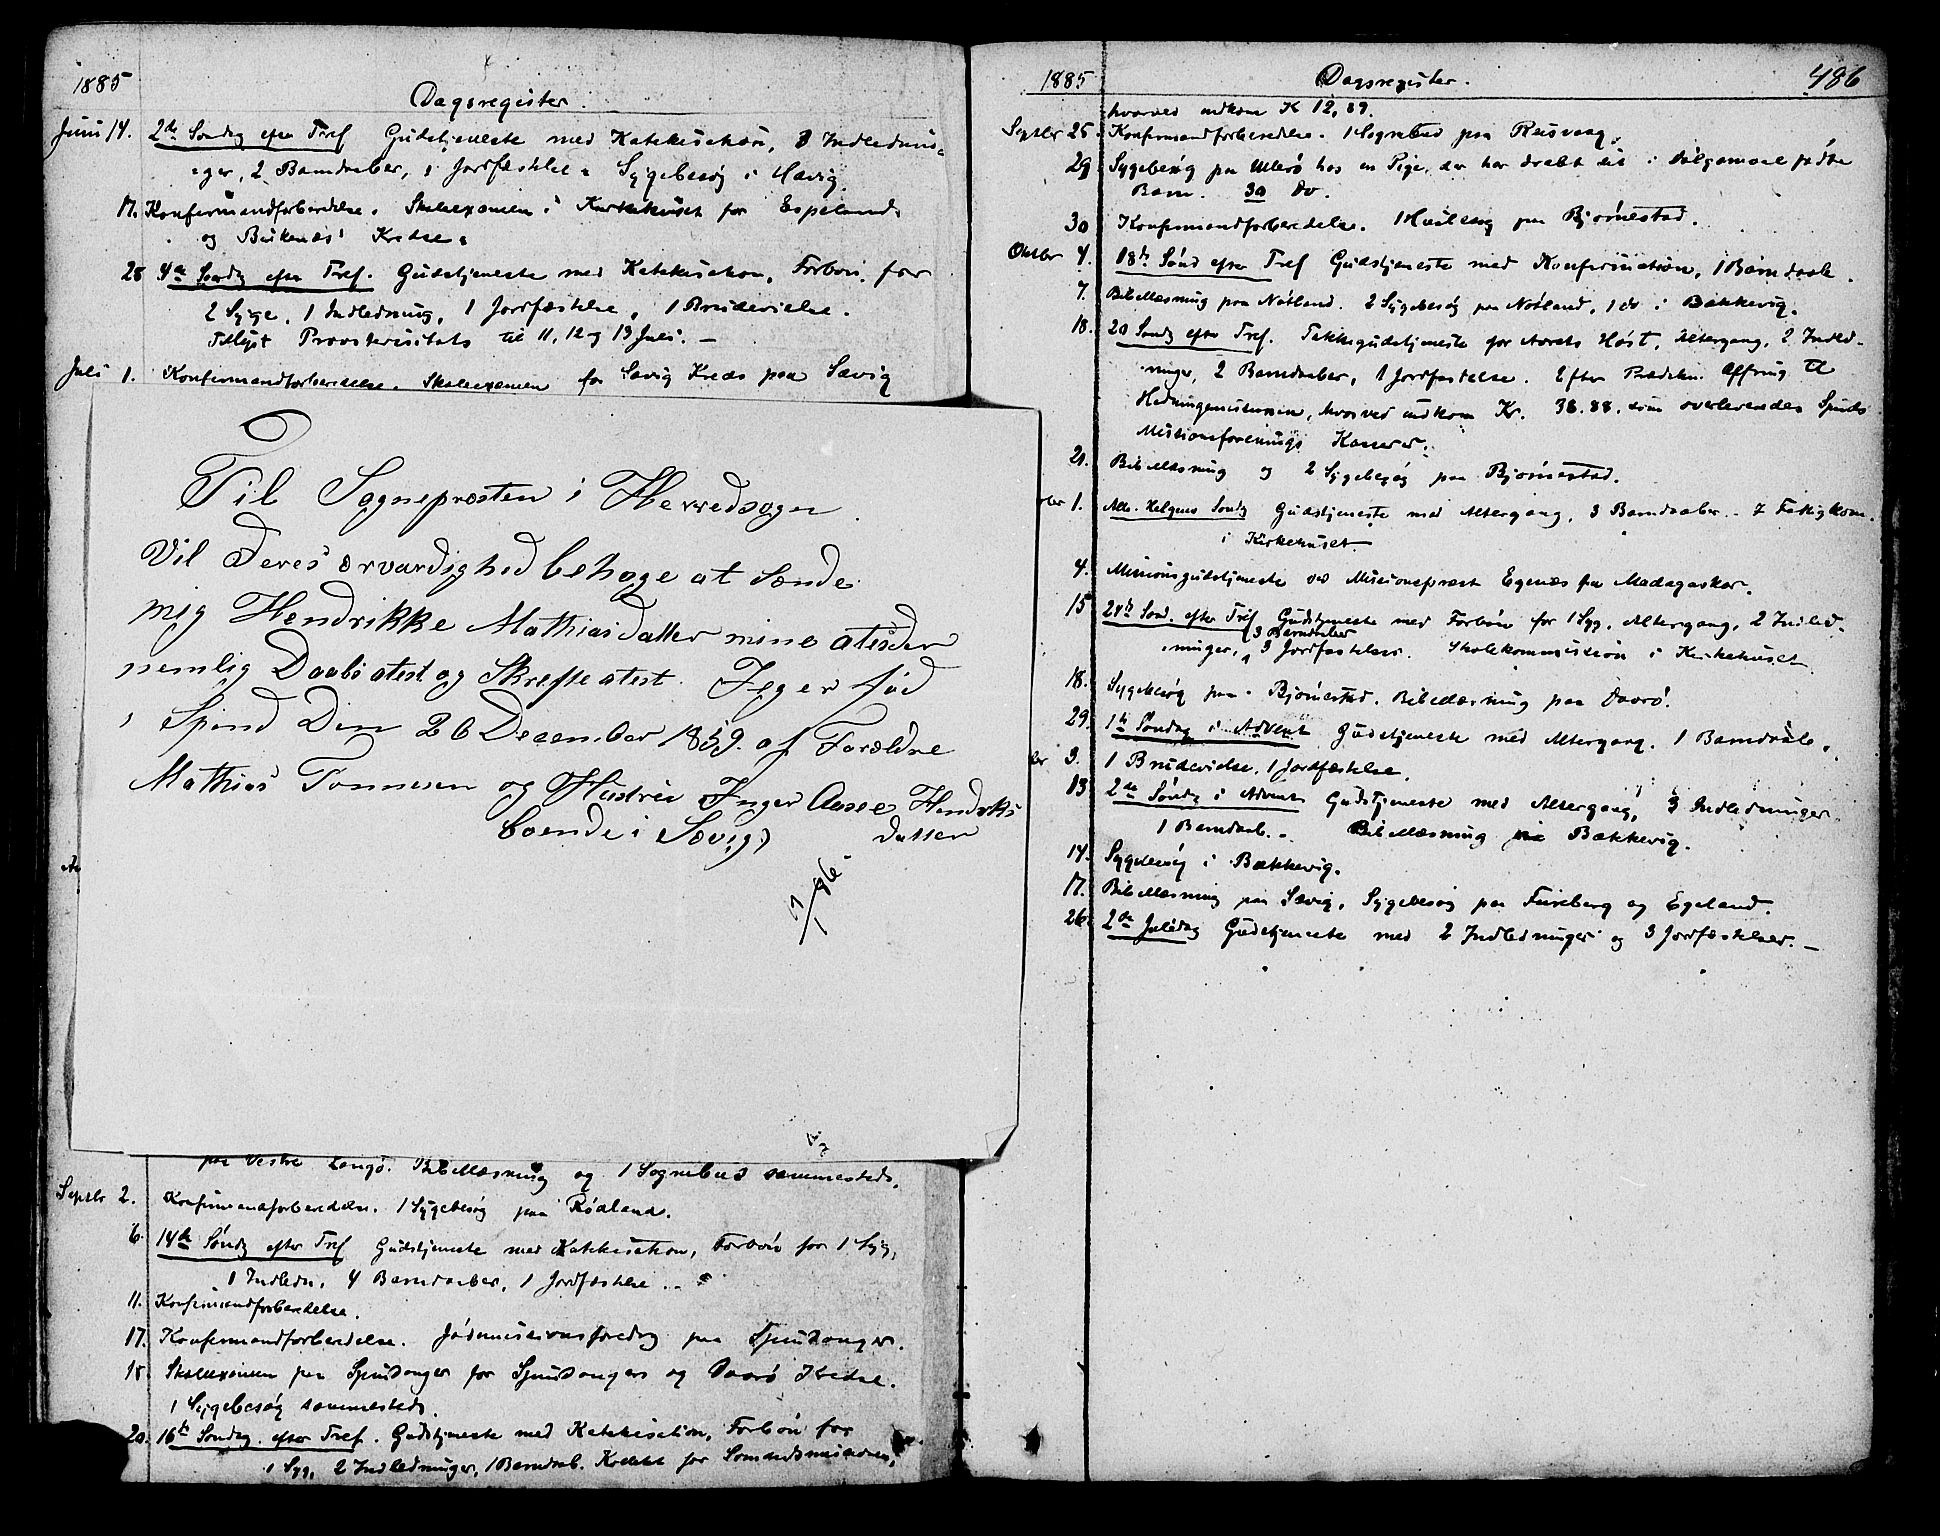 1885
Dagsregister.
Juni 14. 2de Søndg efter Tref Gudstjeneste med Katekisation, 3 Indlednin-
ger, 2 Barndaaber, 1 Jordfæstelse. Sygebesøg i Hævig.
17. Konfirmandforberedelse. Skoleexamen i Kirkehuset for Espelands
og Birkenæs' Kredse.
28 4de Søndg efter Tref. Gudstjeneste med Katekisation, Forbøn for
2 Syge, 1 Indledning, 1 Jordfæstelse, 1 Brudevielse.
Tillyst Provstevisitats til 11, 12 og 13 Juli. —
Juli 1. Konfirmandforberedelse. Skoleexamen for Sævig Kreds paa Sævig
Til Sognepresten i Herredsogn.
Vil Deres ærværdighed behage at sænde
mig Hendrikke Mathiasdatter mine atester
nemlig Daabsatest og Skrefteatest. Jeg er fød
i Spind Den 26 December 1859. af Forældre
Mathias Tonnesen og Hustrue Inger Aasse Hendriks
boende i Sævig) datter
7/1 86
paa Vestre Langø. Bibellæsning og 1 Sognebud sammesteds.
Septbr 2. Konfirmandforberedelse. 1 Sygebesøg paa Rødland.
6. 14de Søndg efter Tref Gudstjeneste med Katekisation, Forbøn for 1 Syg,
1 Indledn. 4 Barndaaber, 1 Jordfæstelse.
11. Konfirmandforberedelse.
17. Konfirmandforberedelse. Jødemissionsforedrag paa Spindanger.
18. Skoleexamen paa Spindanger for Spindangers og Daarø Kredse.
1 Sygebesøg sammesteds.
20. 16de Søndag efter Tref. Gudstjeneste med Katekisation, Forbøn for
1 Syg, 2 Indledninger, 1 Barndaab. Kollekt for Sømandsmissionen,
1885
Dagsregister.
486
hvorved indkom K 12,89.
Septbr 25. Konfirmandforberedelse. 1 Sognebud paa Reisvaag.
29 Sygebesøg paa Ullerø hos en Pige, der har dræbt sit i Dølgsmaal fødte
Barn. 30 do.
30 Konfirmandforberedelse. 1 paa Bjørnestad.
Oktbr 4. 18de Sønd efter Tref Gudstjeneste med Konfirmation, 1 Barndaab.
7. Bibellæsning paa Notland. 2 Sygebesøg paa Notland, 1 do i Bækkevig.
18. 20 Søndg efter Tref. Takkegudstjeneste for Aarets Høst, Altergang, 2 Indled-
ninger, 2 Barndaaber, 1 Jordfæstelse. Efter Prædiken Offring til
Hedningemissionen, hvorved indkom Kr. 38.88. som overleveredes Spinds
Missionsforenings Kasserer.
21. Bibellæsning og 2 Sygebesøg paa Bjørnestad.
1. Alle Helgens Søndg Gudstjeneste med Altergang, 3 Barndaaber. Fattigkom.
i Kirkehuset.
4. Missionsgudstjeneste ved Missionsprest Egenæs fra Madagaskar.
15 24de Sønd. efter Tref Gudstjeneste med Forbøn for 1 Syg, Altergang, 2 Indled-
3 Barndaaber
ninger, 3 Jordfæstelser. Skolekommission i Kirkehuset.
18. Sygebesøg paa Bjørnestad. Bibellæsning paa Daarø.
29. 1ste Søndag i Advent Gudstjeneste med Altergang. 1 Barndaab.
br 9. 1 Brudevielse. 1 Jordfæstelse.
13. 2den Søndg i Advent Gudstjeneste med Altergang, 3 Indledninger.
1 Barndaab. Bibellæsning Bækkevig.
14. Sygebesøg i Bækkevig.
17. Bibellæsning paa Sævig, Sygebesøg paa Fureberg og Egeland.
26. 2den Juledag Gudstjeneste med 2 Indledninger og 3 Jordfæstelser. —